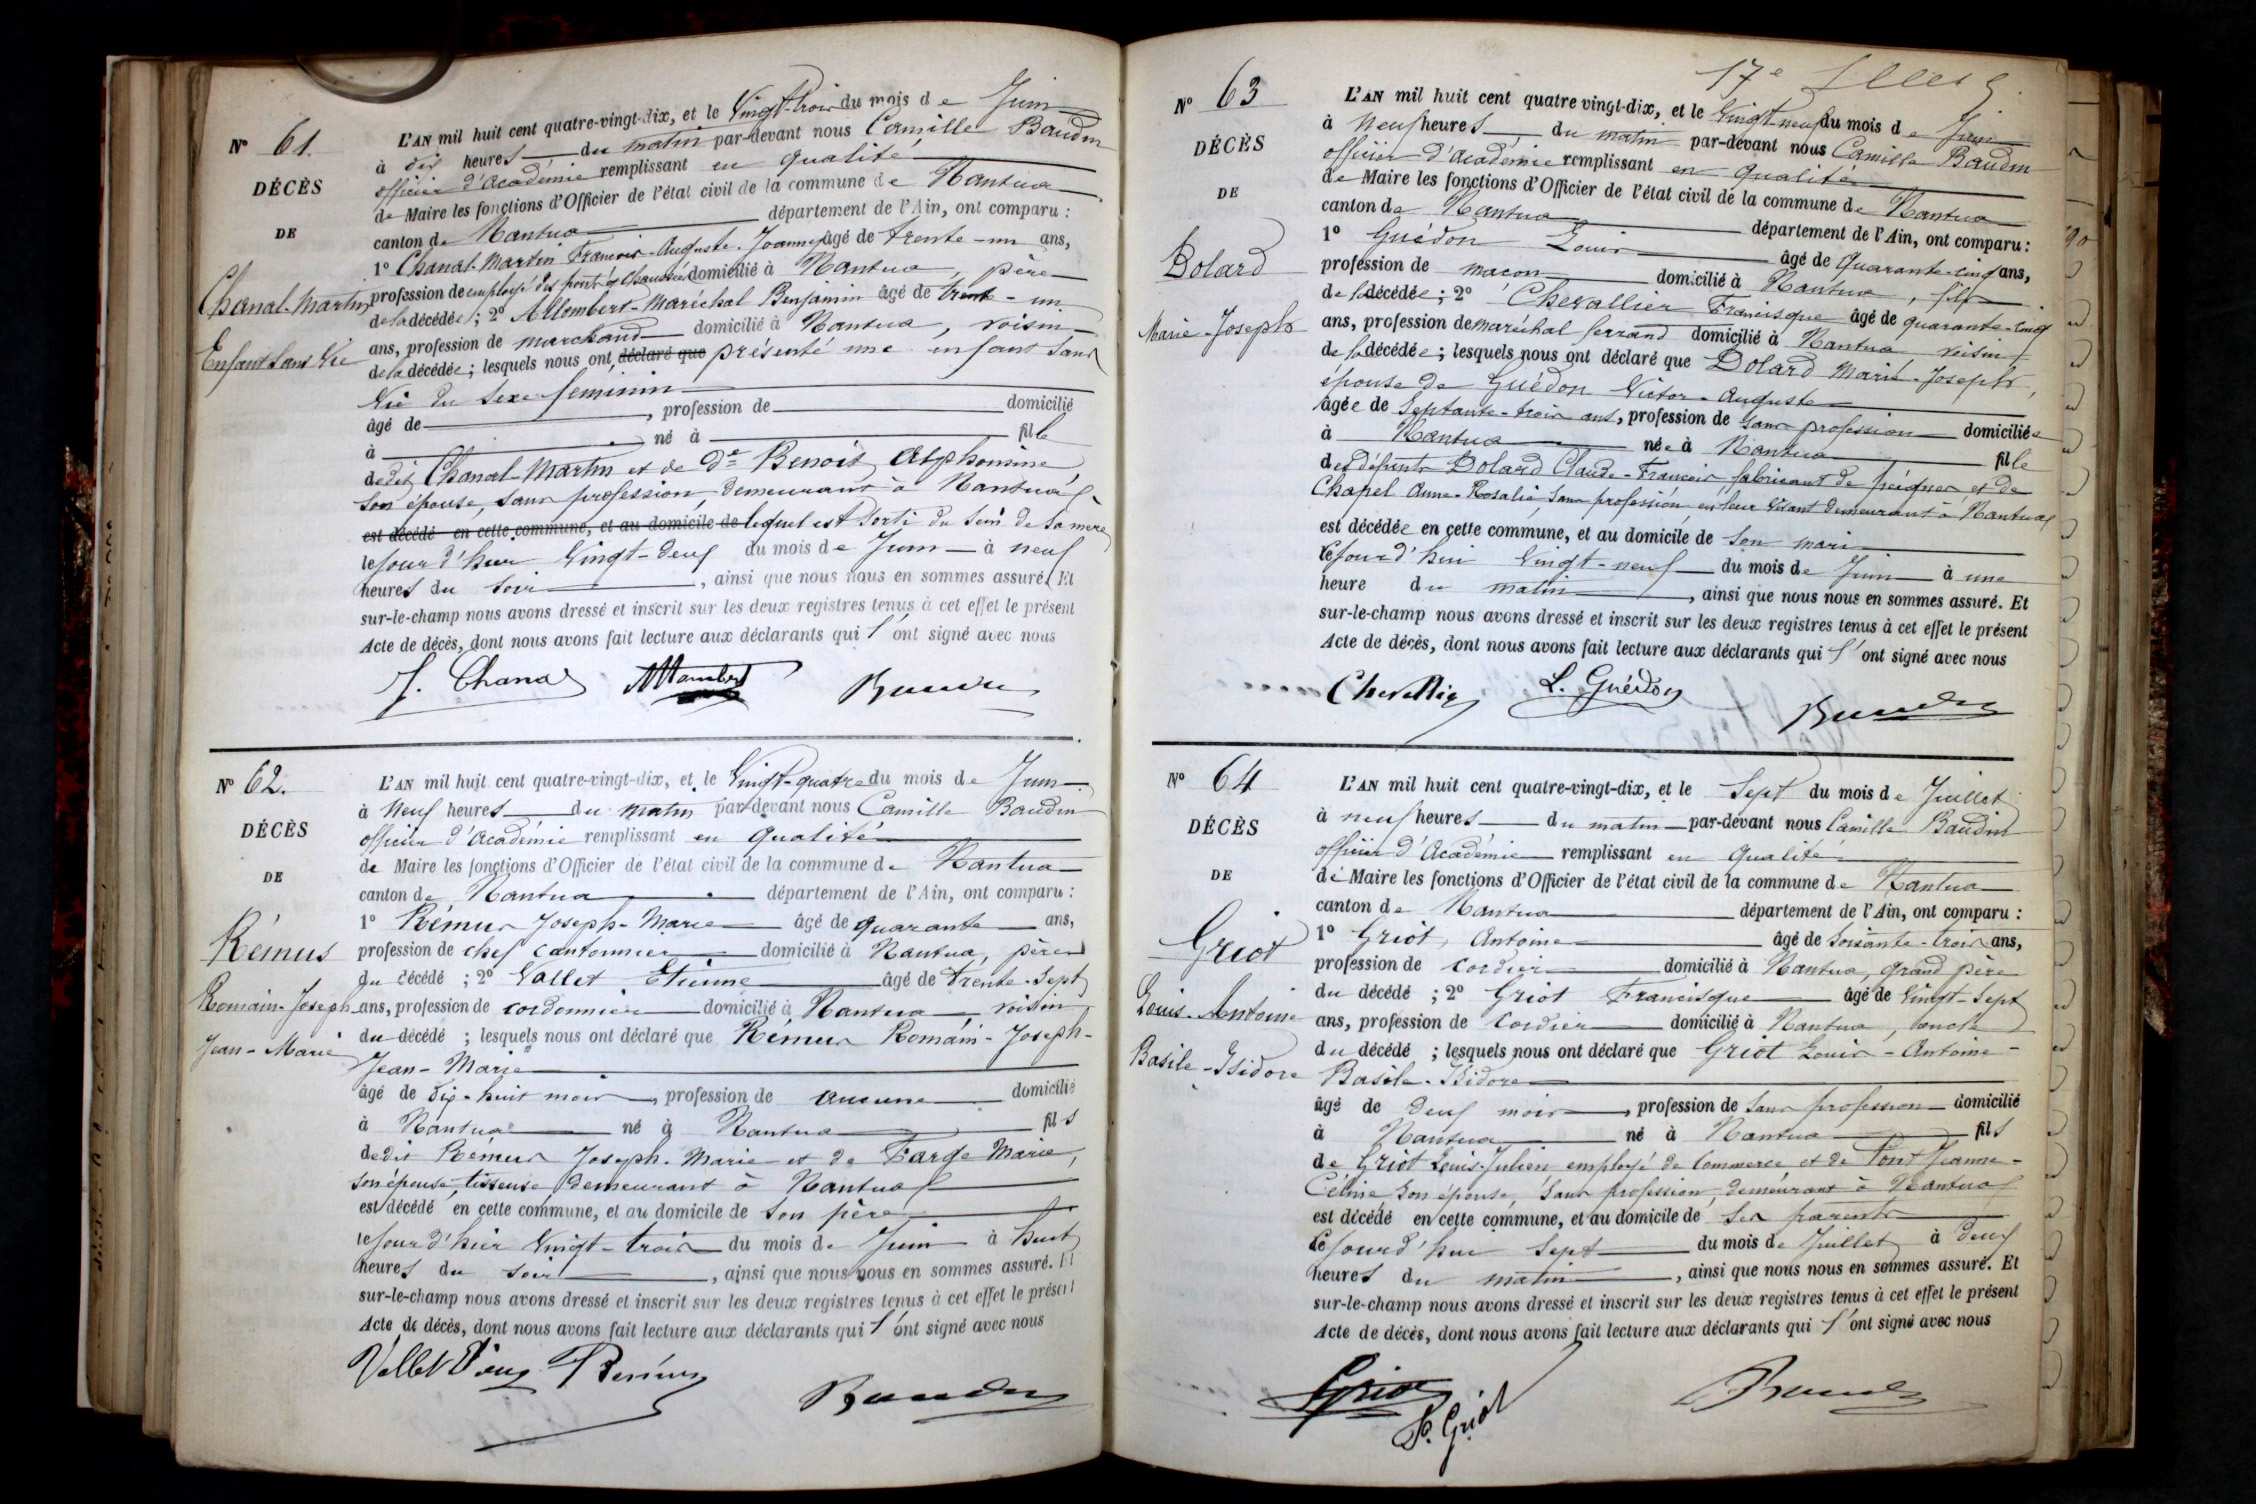 N° 61.
DÉCÈS
DE
Chanal-Martin
Enfant sans Vie
L'AN mil huit cent quatre-vingt-dix, et le Vingt-trois du mois de Juin
à dix heures du matin par-devant nous Camille Baudin
officier d'académie remplissant en qualité
de Maire les fonctions d'Officier de l'état civil de la commune de Nantua
canton de Nantua département de l'Ain, ont comparu :
1° Chanal-Martin François-Auguste-Joanny âgé de trente-un ans,
profession de employé des ponts & chaussées domicilié à Nantua, père
de la décédée ; 2° Allombert-Maréchal Benjamin âgé de trente-un
ans, profession de marchand domicilié à Nantua, voisin
de la décédée ; lesquels nous ont déclaré que présenté une enfant sans
Vie du sexe féminin
âgé de , profession de domicilié
à né à fille
de dit Chanal-Martin et de De Benoit Alphonsine
son épouse, sans profession, demeurant à Nantua
est décédé en cette commune, et au domicile de lequel est sorti du sein de sa mère
le jour d'hier Vingt-deux du mois de Juin à neuf
heures du soir , ainsi que nous nous en sommes assuré. Et
sur-le-champ nous avons dressé et inscrit sur les deux registres tenus à cet effet le présent
Acte de décès, dont nous avons fait lecture aux déclarants qui l'ont signé avec nous
J. Chanal Allombert Baudin
N° 62.
DÉCÈS
DE
Rémus
Romain-Joseph
Jean-Marie
L'AN mil huit cent quatre-vingt-dix, et le Vingt-quatre du mois de Juin
à Neuf heures du matin par-devant nous Camille Baudin
officier d'académie remplissant en qualité
de Maire les fonctions d'Officier de l'état civil de la commune de Nantua
canton de Nantua département de l'Ain, ont comparu :
1° Rémus Joseph-Marie âgé de quarante ans,
profession de chef cantonnier domicilié à Nantua, père
du décédé ; 2° Vallet Etienne âgé de trente-sept
ans, profession de cordonnier domicilié à Nantua, voisin
du décédé ; lesquels nous ont déclaré que Rémus Romain-Joseph-
Jean-Marie
âgé de dix-huit mois, profession de aucune domicilié
à Nantua né à Nantua fils
de dit Rémus Joseph-Marie et de Farge Marie,
son épouse, tisseuse demeurant à Nantua
est décédé en cette commune, et au domicile de son père
le jour d'hier Vingt-trois du mois de Juin à huit
heures du soir , ainsi que nous nous en sommes assuré. Et
sur-le-champ nous avons dressé et inscrit sur les deux registres tenus à cet effet le présent
Acte de décès, dont nous avons fait lecture aux déclarants qui l'ont signé avec nous
Vallet Rémus
Baudin
17e
N° 63
DÉCÈS
DE
Dolard
Marie-Josephe
L'AN mil huit cent quatre vingt-dix, et le Vingt-neuf du mois de Juin
à Neuf heures du matin par-devant nous Camille Baudin
officier d'académie remplissant en qualité
de Maire les fonctions d'Officier de l'état civil de la commune de Nantua
canton de Nantua département de l'Ain, ont comparu :
1° Guédon Louis âgé de quarante-cinq ans,
profession de maçon domicilié à Nantua, fils
de la décédée ; 2° Chevallier Francisque âgé de quarante-cinq
ans, profession de maréchal ferrand domicilié à Nantua voisin
de la décédée ; lesquels nous ont déclaré que Dolard Marie-Josephe,
épouse de Guédon Victor-Auguste
âgée de Septante-trois ans, profession de sans profession domiciliée
à Nantua née à Nantua fille
des défunts Dolard Claude-François fabricant de peignes et de
Chapel Anne-Rosalie, sans profession en leur vivant demeurant à Nantua
est décédée en cette commune, et au domicile de son mari
ce jourd'hui Vingt-neuf du mois de Juin à une
heure du matin , ainsi que nous nous en sommes assuré. Et
sur-le-champ nous avons dressé et inscrit sur les deux registres tenus à cet effet le présent
Acte de décès, dont nous avons fait lecture aux déclarants qui l'ont signé avec nous
Chevallier L. Guédon
Baudin
N° 64
DÉCÈS
DE
Griot
Louis-Antoine
Basile-Isidore
L'AN mil huit cent quatre-vingt-dix, et le Sept du mois de Juillet
à neuf heures du matin par-devant nous Camille Baudin
officier d'Académie remplissant en qualité
de Maire les fonctions d'Officier de l'état civil de la commune de Nantua
canton de Nantua département de l'Ain, ont comparu :
1° Griot, Antoine âgé de soixante-trois ans,
profession de cordier domicilié à Nantua, grand père
du décédé ; 2° Griot Francisque âgé de Vingt-sept
ans, profession de cordier domicilié à Nantua, oncle
du décédé ; lesquels nous ont déclaré que Griot Louis-Antoine-
Basile-Isidore
âgé de deux mois , profession de sans profession domicilié
à Nantua né à Nantua fils
de Griot Louis-Julien employé de commerce et de Pont Jeanne-
Céline son épouse, sans profession, demeurant à Nantua
est décédé en cette commune, et au domicile de ses parents
ce jourd'hui sept du mois de Juillet à deux
heures du matin , ainsi que nous nous en sommes assuré. Et
sur-le-champ nous avons dressé et inscrit sur les deux registres tenus à cet effet le présent
Acte de décès, dont nous avons fait lecture aux déclarants qui l'ont signé avec nous
Griot
F. Griot
Baudin